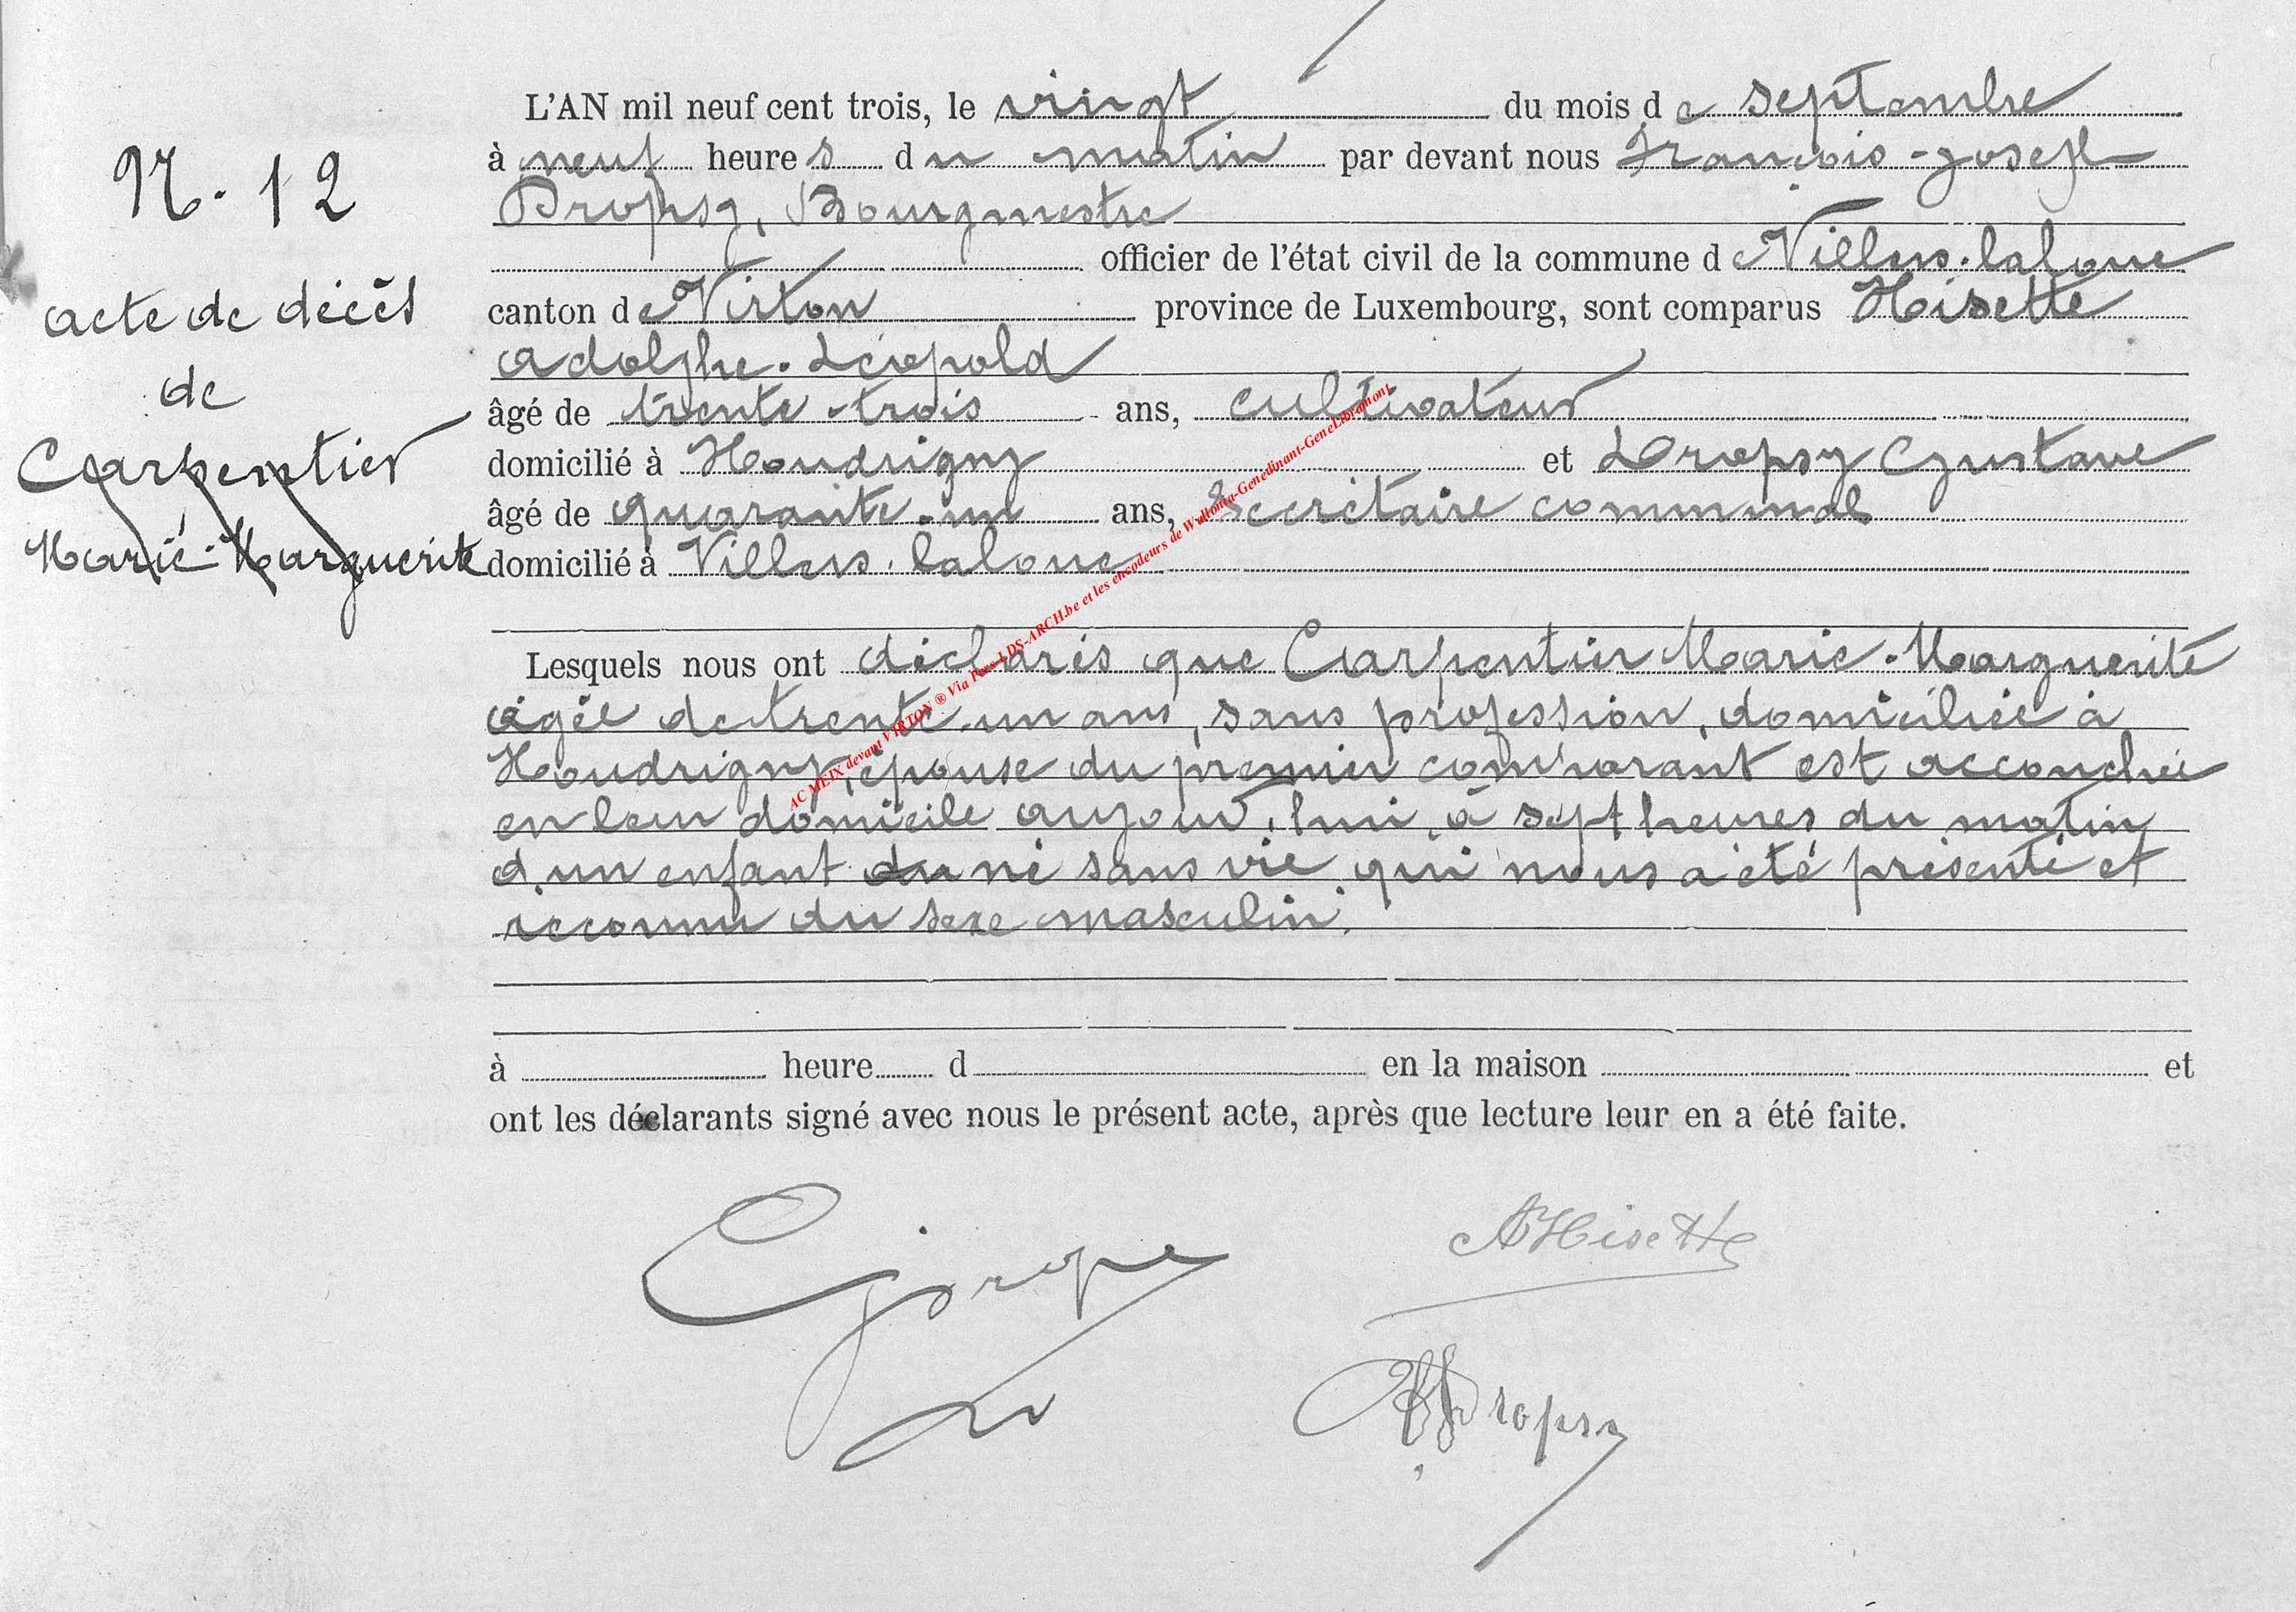 N. 12
acte de décès
de
Carpentier
Marie-Marguerite
L'AN mil neuf cent trois, le vingt du mois de septembre
à neuf heures du matin par devant nous François-Joseph
Dropsy, Bourgmestre
officier de l'état civil de la commune de Villers-laloue
canton de Virton province de Luxembourg, sont comparus Hisette
Adolphe-Léopold
âgé de trente-trois ans, cultivateur
domicilié à Houdrigny et Dropsy Gustave
âgé de quarante-un ans, Secrétaire communal
domicilié à Villers-laloue
Lesquels nous ont déclarés que Carpentier Marie-Marguerite
âgée de trente-un ans, sans profession, domiciliée à
Houdrigny, épouse du premier comparant est accouchée
en leur domicile aujourd'hui, à sept heures du matin
d'un enfant né sans vie qui nous a été présenté et
reconnu du sexe masculin.
à heure d en la maison et
ont les déclarants signé avec nous le présent acte, après que lecture leur en a été faite.
AHisette
Dropsy
AC MEIX devant VIRTON ® Via Pars-LDS-ARCH.be et les encodeurs de Wallonia-Genedinant-GeneLibramont